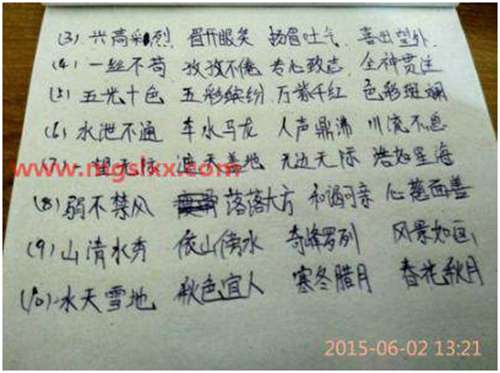 (3) 兴高彩烈 眉开眼笑 扬眉吐气 喜出望外
(4) 一丝不苟 孜孜不倦 专心致志 全神贯注
(5) 五光十色 五彩缤纷 万紫千红 色彩斑斓
(6) 水泄不通 车水马龙 人声鼎沸 川流不息
(7) 一望无际 遮天盖地 无边无际 浩如星海
www.mgslkx.com
(8) 弱不禁风 落落大方 和谒可亲 心慈面善
(9) 山清水秀 依山傍水 奇峰罗列 风景如画
(10) 水天雪地 秋色宜人 寒冬腊月 春花秋月
2015-06-02 13:21